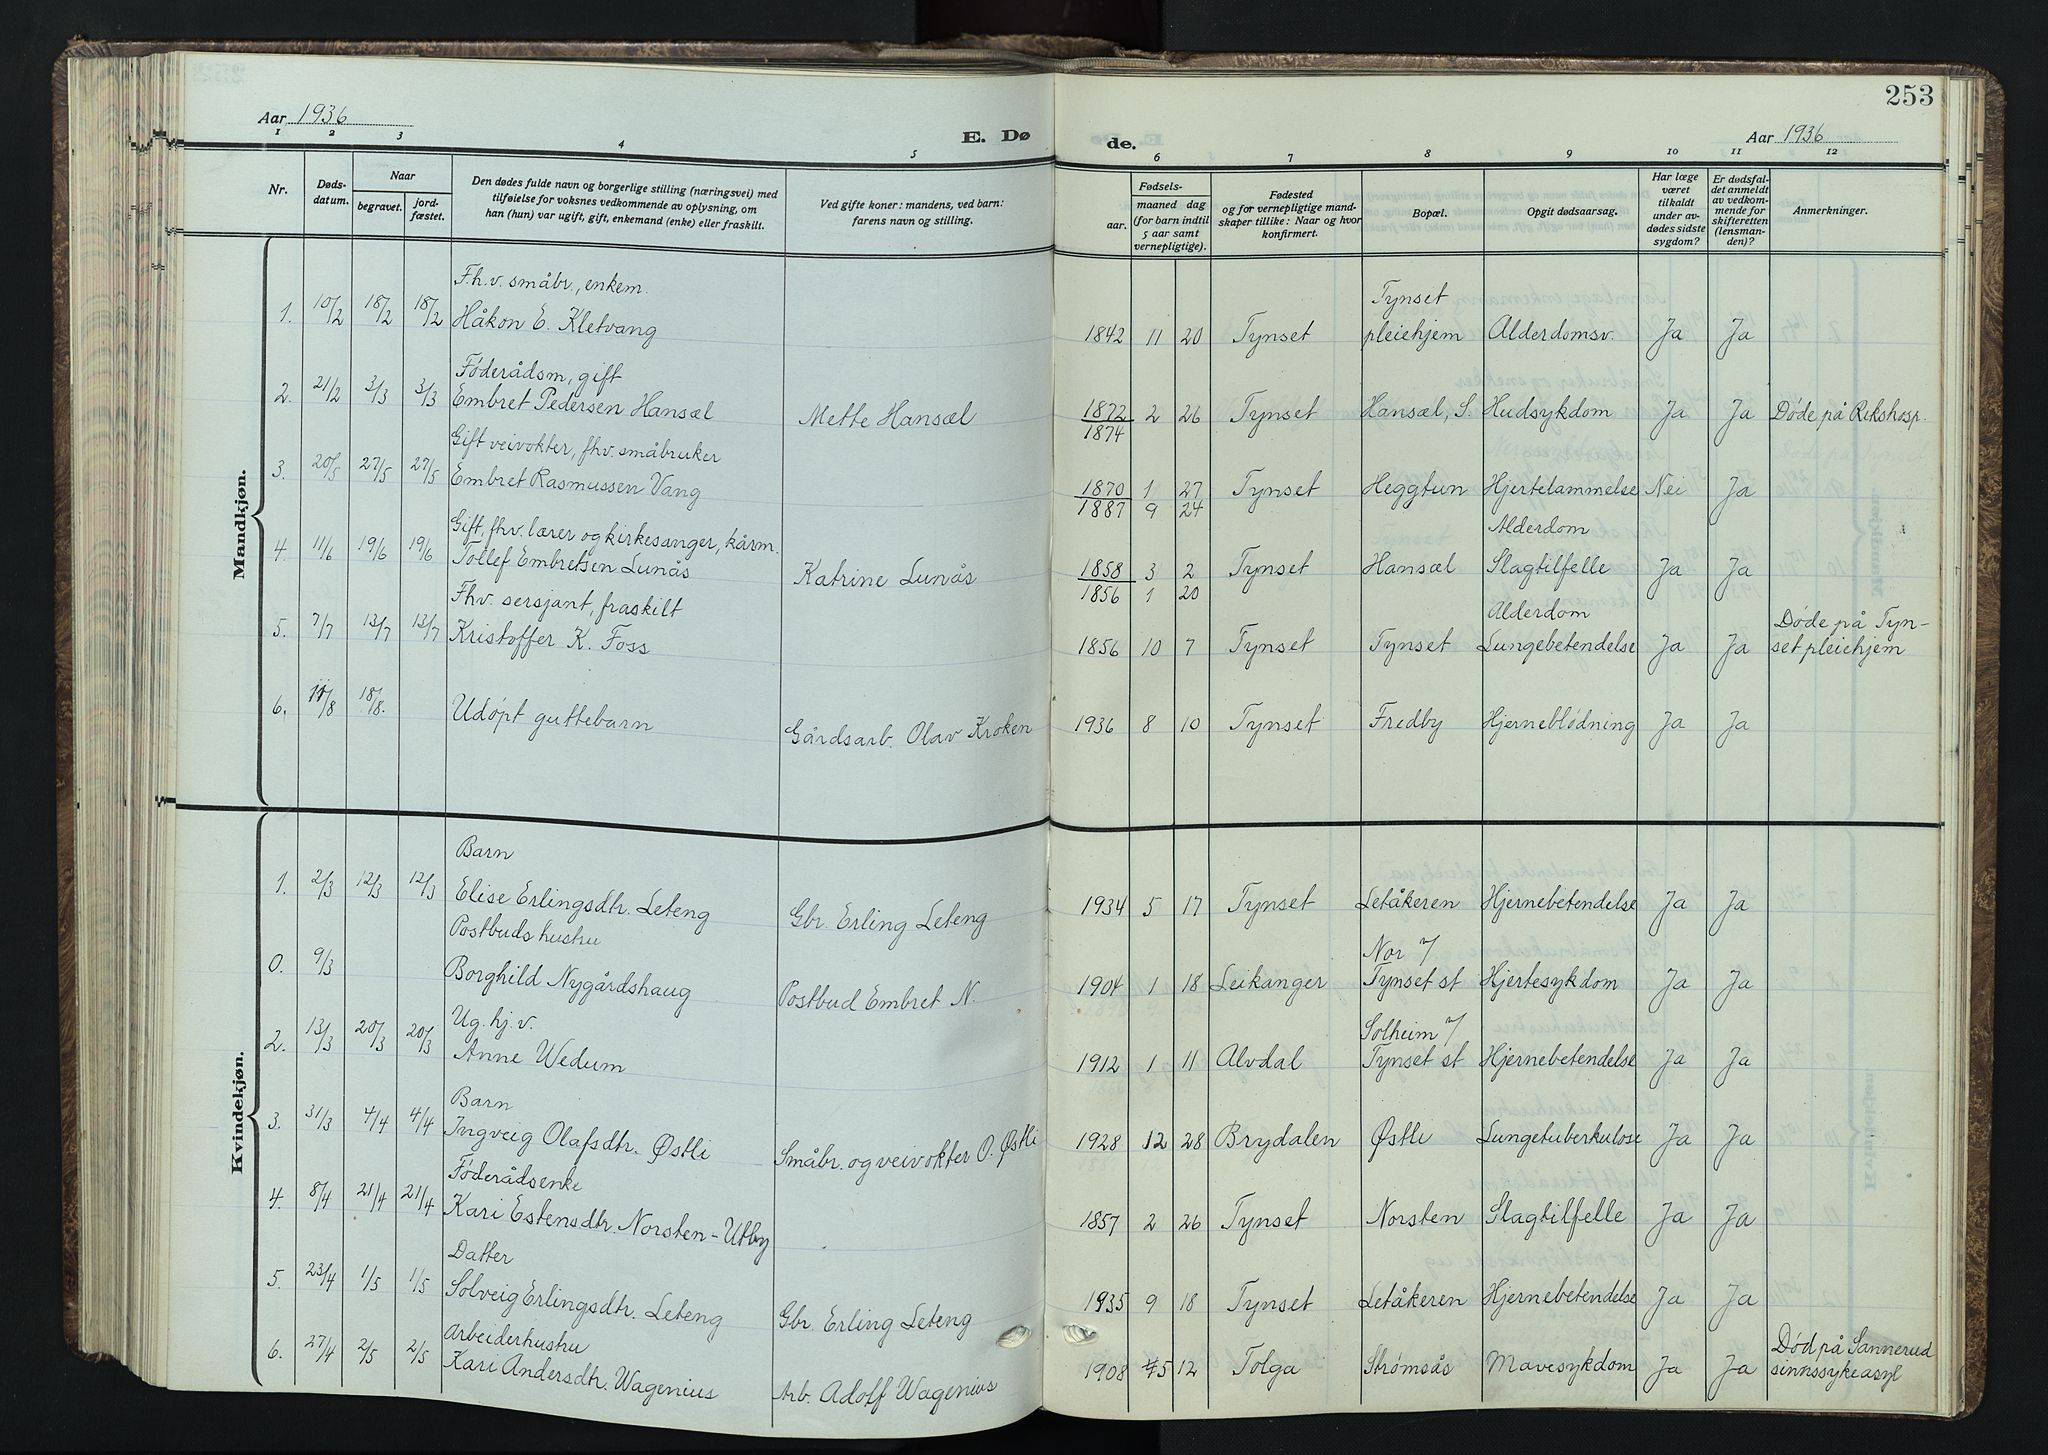 253
Aar 1936
E. Dø
de.
Aar 1936
1 2 3 4 5 6 7 8 9 10 11 12
Nr.
Døds-
datum.
Naar
begravet.
jord-
fæstet.
Den dødes fulde navn og borgerlige stilling (næringsvei) med
tilføielse for voksnes vedkommende av oplysning, om
han (hun) var ugift, gift, enkemand (enke) eller fraskilt.
Ved gifte koner: mandens, ved barn:
farens navn og stilling.
Fødsels-
aar.
maaned dag
(for barn indtil
5 aar samt
vernepligtige).
Fødested
og for vernepligtige mand-
skaper tillike: Naar og hvor
konfirmert.
Bopæl.
Opgit dødsaarsag.
Har læge
været
tilkaldt
under av-
dødes sidste
sygdom?
Er dødsfal-
det anmeldt
av vedkom-
mende for
skifteretten
(lensman-
den)?
Anmerkninger.
Mandkjøn.
Fh.v. småbr., enkem.
Tynset
1. 10/2 18/2 18/2 Håkon E. Kletvang 1842 11 20 Tynset pleiehjem Alderdomsv. Ja Ja
Føderådsm, gift
2. 21/2 3/3 3/3 Embret Pedersen Hansæl Mette Hansæl 1872 2 26 Tynset Hansæl, S. Hudsykdom Ja Ja Døde på Rikshosp.
1874
Gift veivokter, fhv. småbruker
3. 20/5 27/5 27/5 Embret Rasmussen Vang 1870 1 27 Tynset Heggtun Hjertelammelse Nei Ja
1887 9 24
Gift, fhv. lærer og kirkesanger, kårm. Alderdom
4. 11/6 19/6 19/6 Tollef Embretsen Lunås Katrine Lunås 1858 3 2 Tynset Hansæl Slagtilfelle Ja Ja
1856 1 20
Fhv. sersjant, fraskilt Alderdom Døde på Tyn-
5. 7/7 13/7 13/7 Kristoffer K. Foss 1856 10 7 Tynset Tynset Lungebetendelse Ja Ja set pleiehjem
6. 11/8 18/8. Udøpt guttebarn Gårdsarb. Olav Kroken 1936 8 10 Tynset Fredby Hjerneblødning Ja Ja
Kvindekjøn.
Barn
1. 2/3 12/3 12/3 Elise Erlingsdtr. Leteng Gbr. Erling Leteng 1934 5 17 Tynset Letåkeren Hjernebetendelse Ja Ja
Postbuds hustru Nor ⁿ/
0. 9/3 Borghild Nygårdshaug Postbud Embret N. 1904 1 18 Leikanger Tynset st Hjertesykdom Ja Ja
Ug. hj. v. Solheim ⁿ/
2. 13/3 20/3 20/3 Anne Wedum 1912 1 11 Alvdal Tynset st Hjernebetendelse Ja Ja
Barn
3. 31/3 4/4 4/4 Ingveig Olafsdtr. Østli Småbr. og veivokter O. Østli 1928 12 28 Brydalen Østli Lungetuberkulose Ja Ja
Føderådsenke
4. 8/4 21/4 21/4 Kari Estensdtr. Norsten-Utby 1857 2 26 Tynset Norsten Slagtilfelle Ja Ja
Datter
5. 23/4 1/5 1/5 Solveig Erlingsdtr. Leteng Gbr. Erling Leteng 1935 9 18 Tynset Letåkeren Hjernebetendelse Ja Ja
Arbeiderhustru Død på Sannerud
6. 27/4 2/5 2/5 Kari Andersdtr. Wagenius Arb. Adolf Wagenius 1908 5 12 Tolga Strømsås Mavesykdom Ja Ja sinnssykeasyl